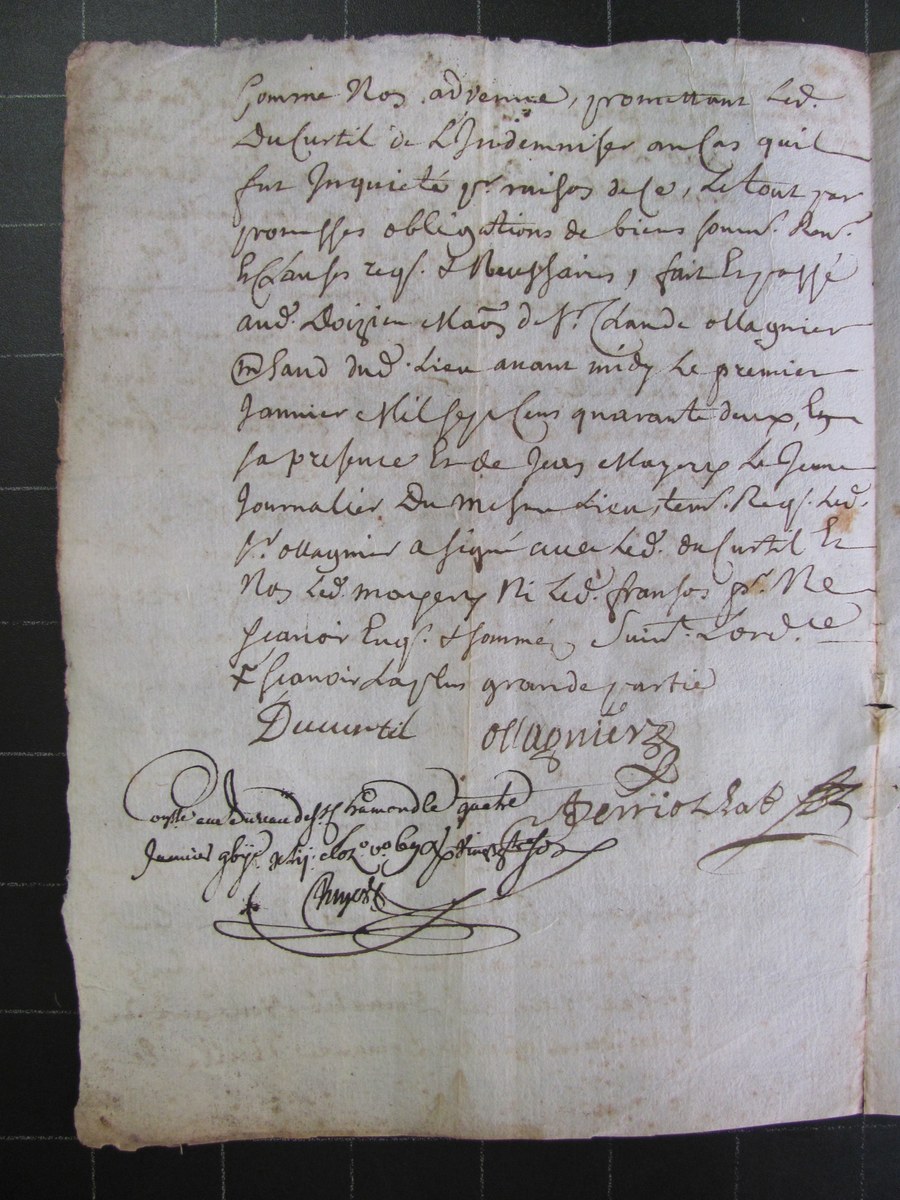 Comme Non advenue, promettant Led.
Ducurtil de L'Indemniser au Cas quil
fut Inquieté pr. raison de Ce, Le tout par
promesses obligations de biens soum. Ren.
Et Clauses reqs. & Necessaires, fait Et passé
aud. Doizieu Maison de Sr. Claude ollagnier
md dud. Lieu avant midy Le premier
Janvier Mil sept Cens quarante deux, En
sa presence Et de Jean Mayery Le Jeune
Journalier Du mesme Lieu, tem. Reqs. Led.
Sr. ollagnier a signé avec Led. ducurtil Et
Non Led. mayery Ni Led. fransos pr. Ne
sçavoir Enqs. & sommés Suivt. L'ord.ce
& sçavoir La plus grande partie
Ducurtil ollagnier
au Bureau de St. Chamond le quatre
Janvier